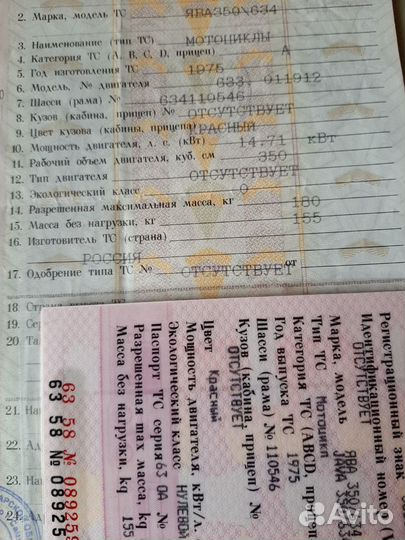 2. Марка, модель ТС ЯВА350\634
3. Наименование (тип ТС) МОТОЦИКЛЫ
4. Категория ТС (A, B, C, D, прицеп) А
5. Год изготовления ТС 1975
6. Модель, № двигателя 633, 011912
7. Шасси (рама) № 634110546
8. Кузов (кабина, прицеп) № ОТСУТСТВУЕТ
9. Цвет кузова (кабины, прицепа) КРАСНЫЙ
10. Мощность двигателя, л. с. (кВт) 14.71 кВт
11. Рабочий объем двигателя, куб. см 350
12. Тип двигателя ОТСУТСТВУЕТ
13. Экологический класс 0
14. Разрешенная максимальная масса, кг 180
15. Масса без нагрузки, кг 155
16. Изготовитель ТС (страна)
РОССИЯ
17. Одобрение типа ТС № ОТСУТСТВУЕТ от
18.
19.
20.
21.
22.
23.
24.
Регистрационный знак
Идентификационный номер
ОТСУТСТВУЕТ
Марка, модель ЯВА 350
JAWA
Тип ТС Мотоцикл
Категория ТС (ABCD, прицеп)
Год выпуска ТС 1975
Шасси (рама) № 110546
Кузов (кабина, прицеп) №
ОТСУТСТВУЕТ
Цвет Красный
Мощность двигателя, кВт/л.
Экологический класс НУЛЕВОЙ
Паспорт ТС серия 63 ОА №
Разрешенная max масса, kg
Масса без нагрузки, kg 155
63 58 № 089258
63 58 № 089258
Avito